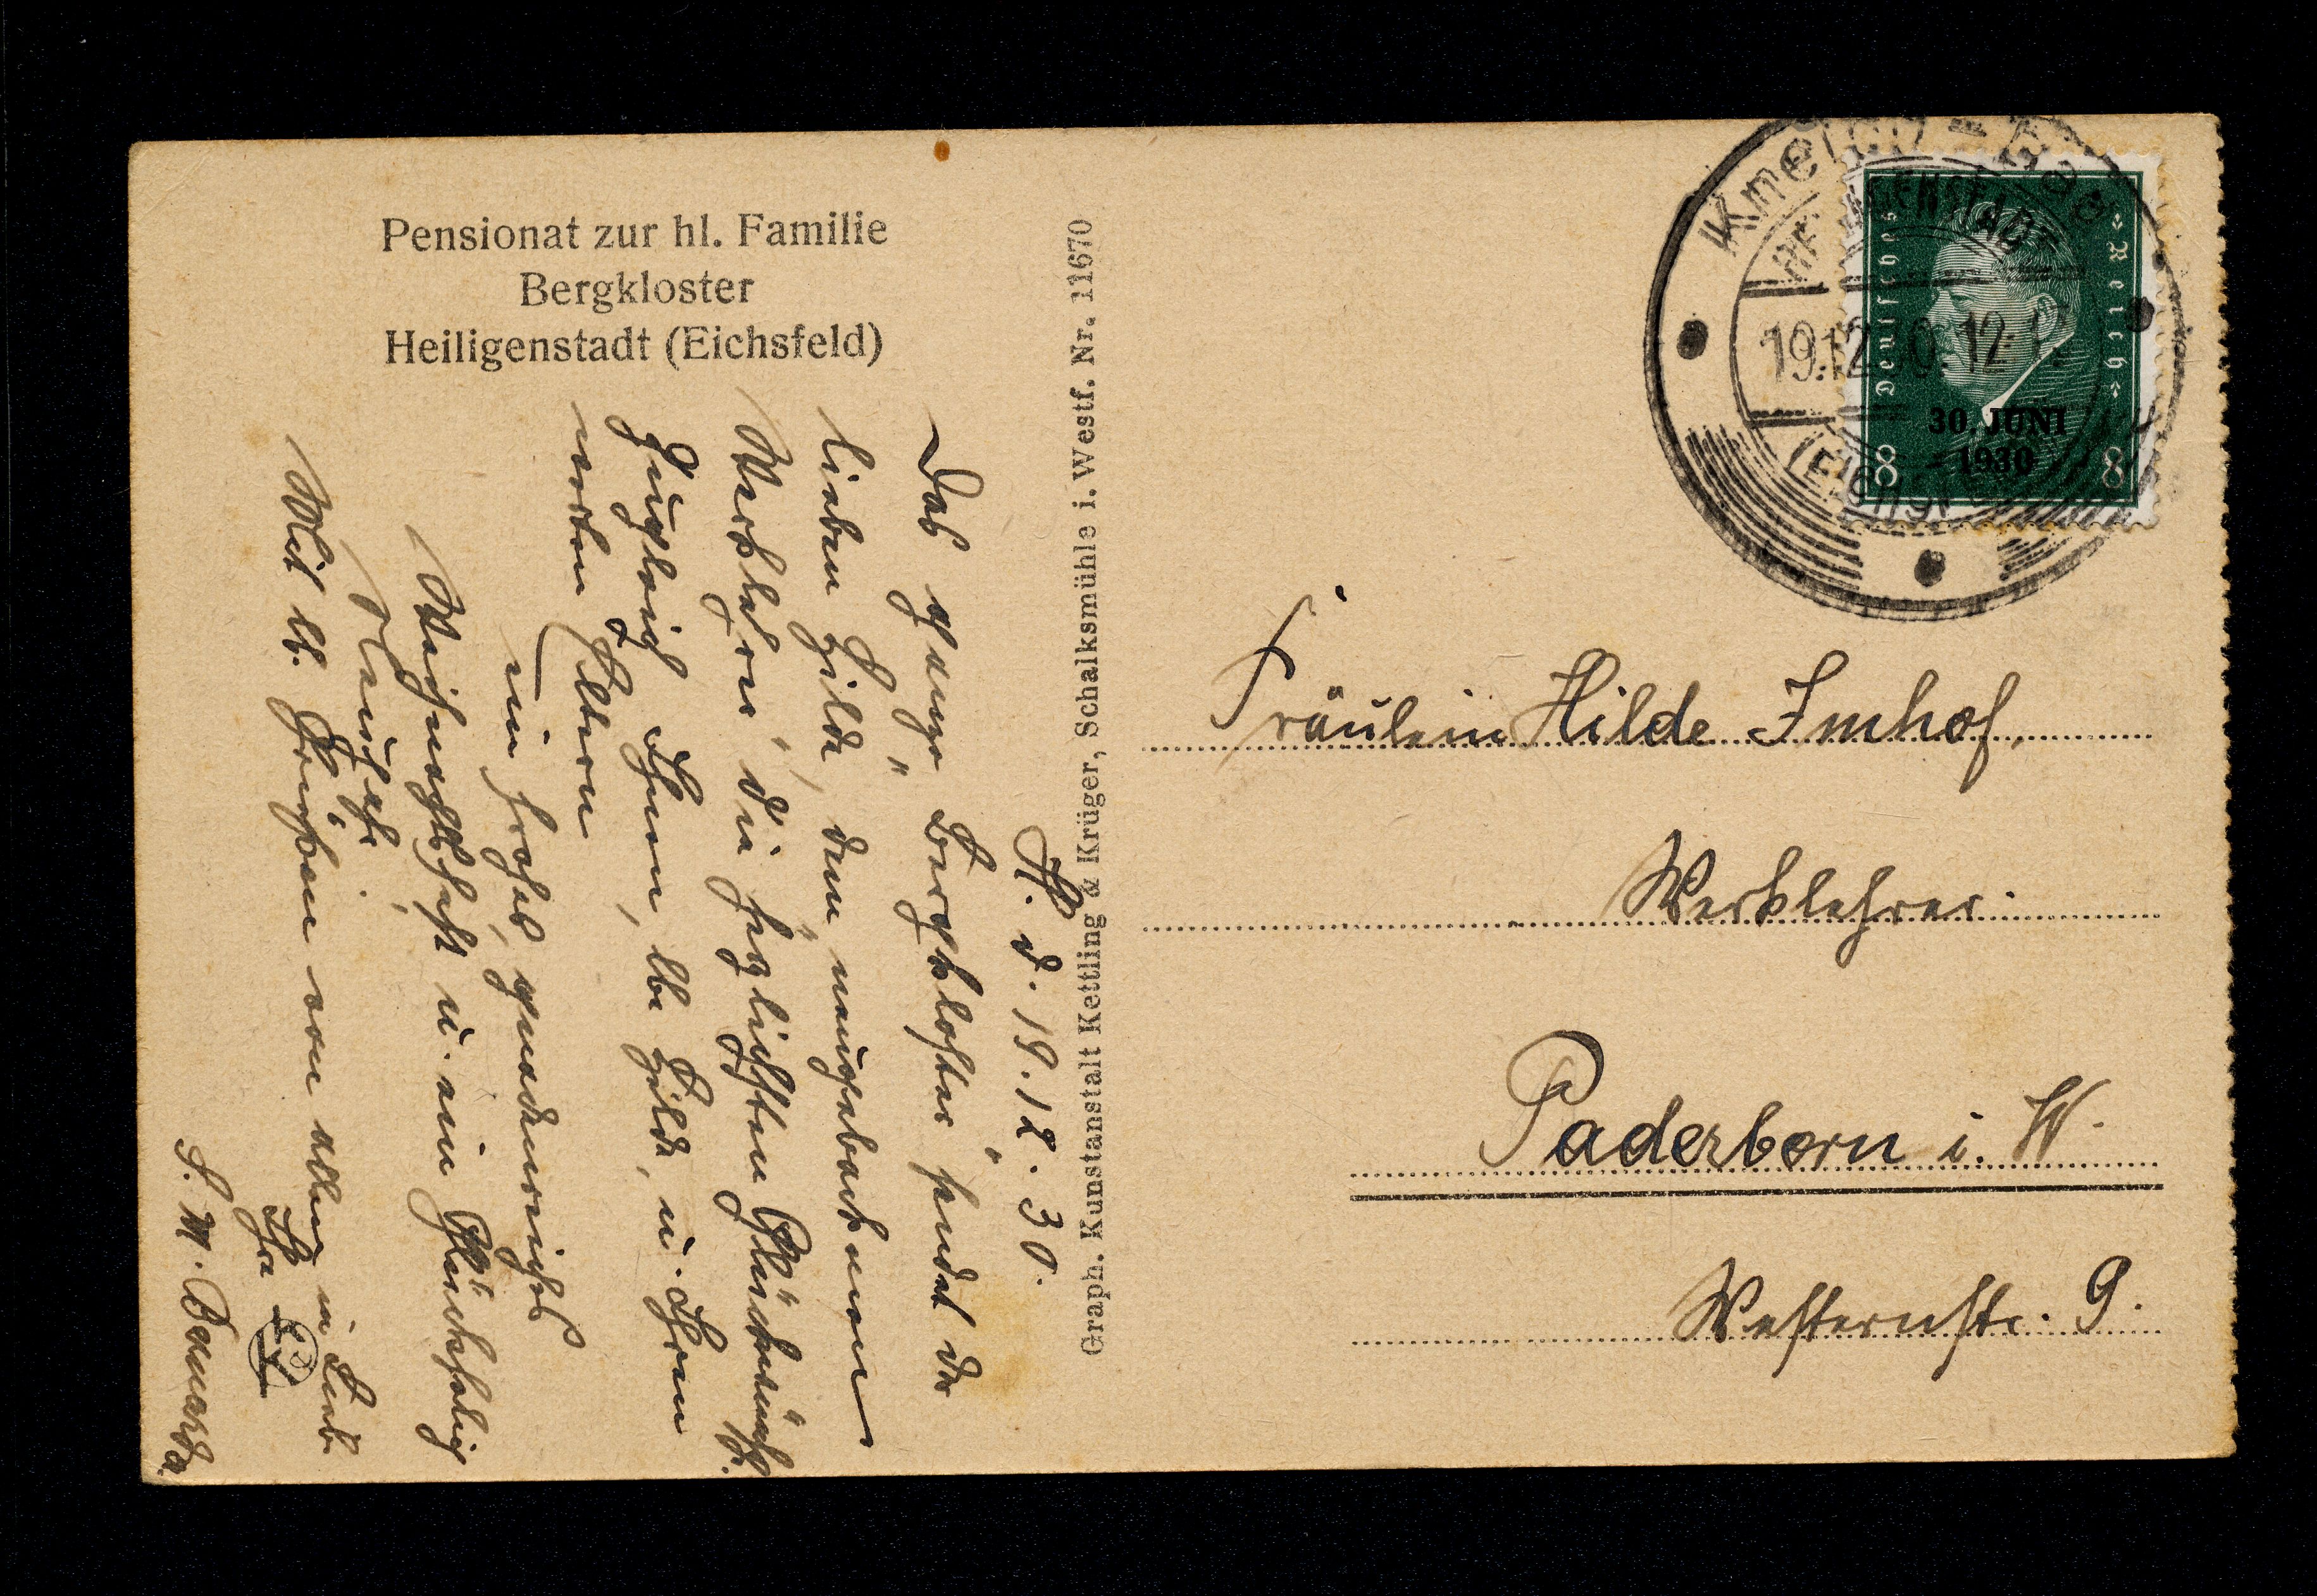 Pensionat zur hl. Familie
Bergkloster
Heiligenstadt (Eichsfeld)
H. d. 19.12.30.
Das ganze "Bergkloster" sendet der
lieben Hilde, dem "neugebackenen
Werklehrer", die herzlichsten Glückwünsche.
Zugleich Ihnen, lb. Hilde, u. Ihren
werten Eltern
ein frohes, gnadenreiches
Weihnachtsfest u. ein glückseliges
Neujahr.
Mit lb. Grüßen von allen in Liebe
Ihre
S. M. Bernarda
Graph. Kunstanstalt Kettling & Krüger, Schalksmühle i. Westf. Nr. 11670
Kneipp-Bad
HEILIGENSTADT
19.12.30. 12
(Eichsf
Deutsches Reich
30. JUNI
1930
8 8
Fräulein Hilde Imhof,
Werklehrer.
Paderborn i. W.
Westernstr. 9.